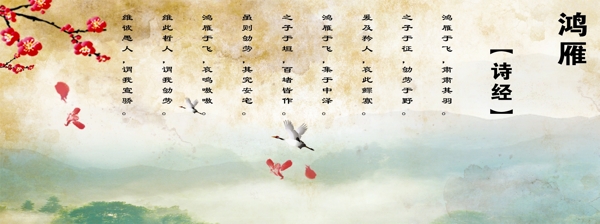 鸿雁
【诗经】
鸿雁于飞，肃肃其羽。
之子于征，劬劳于野。
爰及矜人，哀此鳏寡。
鸿雁于飞，集于中泽。
之子于垣，百堵皆作。
虽则劬劳，其究安宅。
鸿雁于飞，哀鸣嗷嗷。
维此哲人，谓我劬劳。
维彼愚人，谓我宣骄。